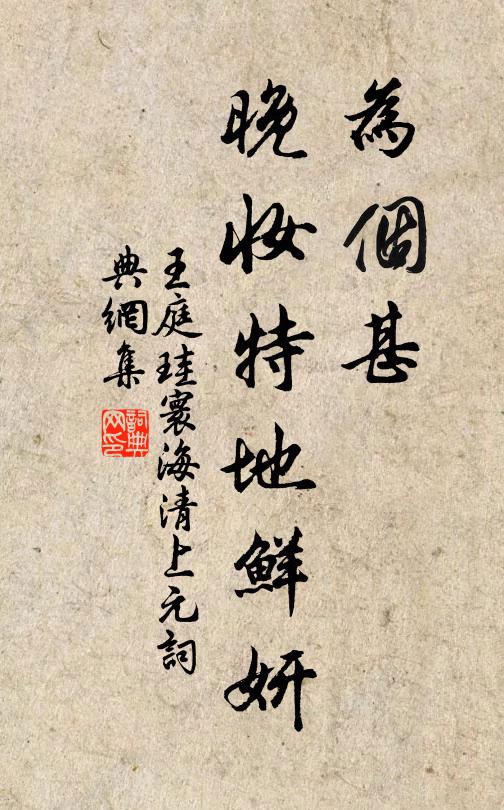 為個甚
晚妝特地鮮妍
王庭珪寰海清上元詞
典網集
詞典
网印